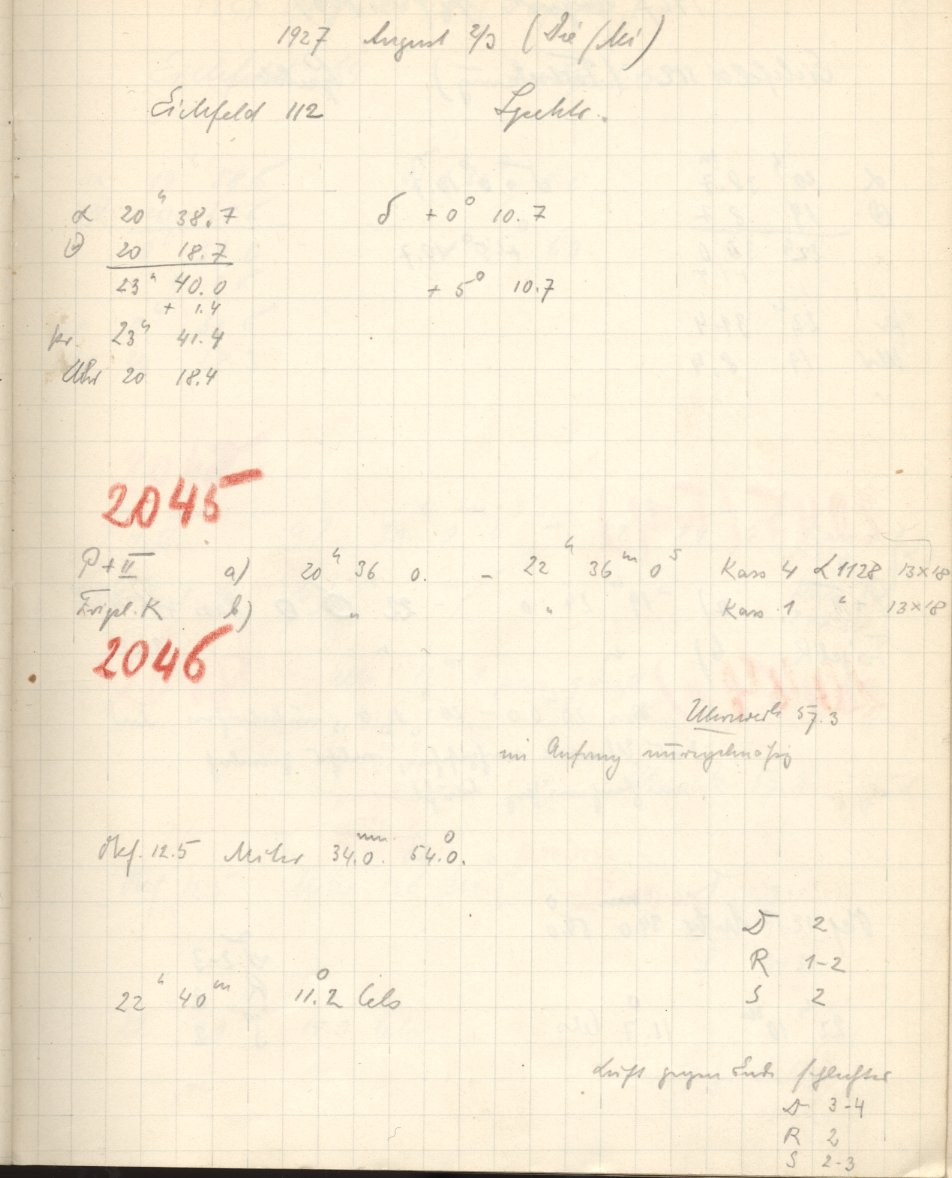 1927 August 2/3 (Die/Mi)
Eichfeld 112 Spektr.
α 20ʰ 38.7 δ +0° 10.7
Θ 20 18.7
23ʰ 40.0 +5° 10.7
+ 1.4
kr. 23ʰ 41.4
Uhr 20 18.4
2045
P+II a) 20ʰ 36 0. – 22ʰ 36ᵐ 0ˢ Kass 4 L 1128 13×18
Tripl. K b) " " Kass 1 " 13×18
2046
Uhrwerk 57.3
im Anfang unregelmäßig
Okf. 12.5 Mikr 34.0ᵐᵐ 54.0°.
D 2
R 1-2
22ʰ 40ᵐ 11.2° Cels S 2
Luft gegen Ende schlechter
D 3-4
R 2
S 2-3